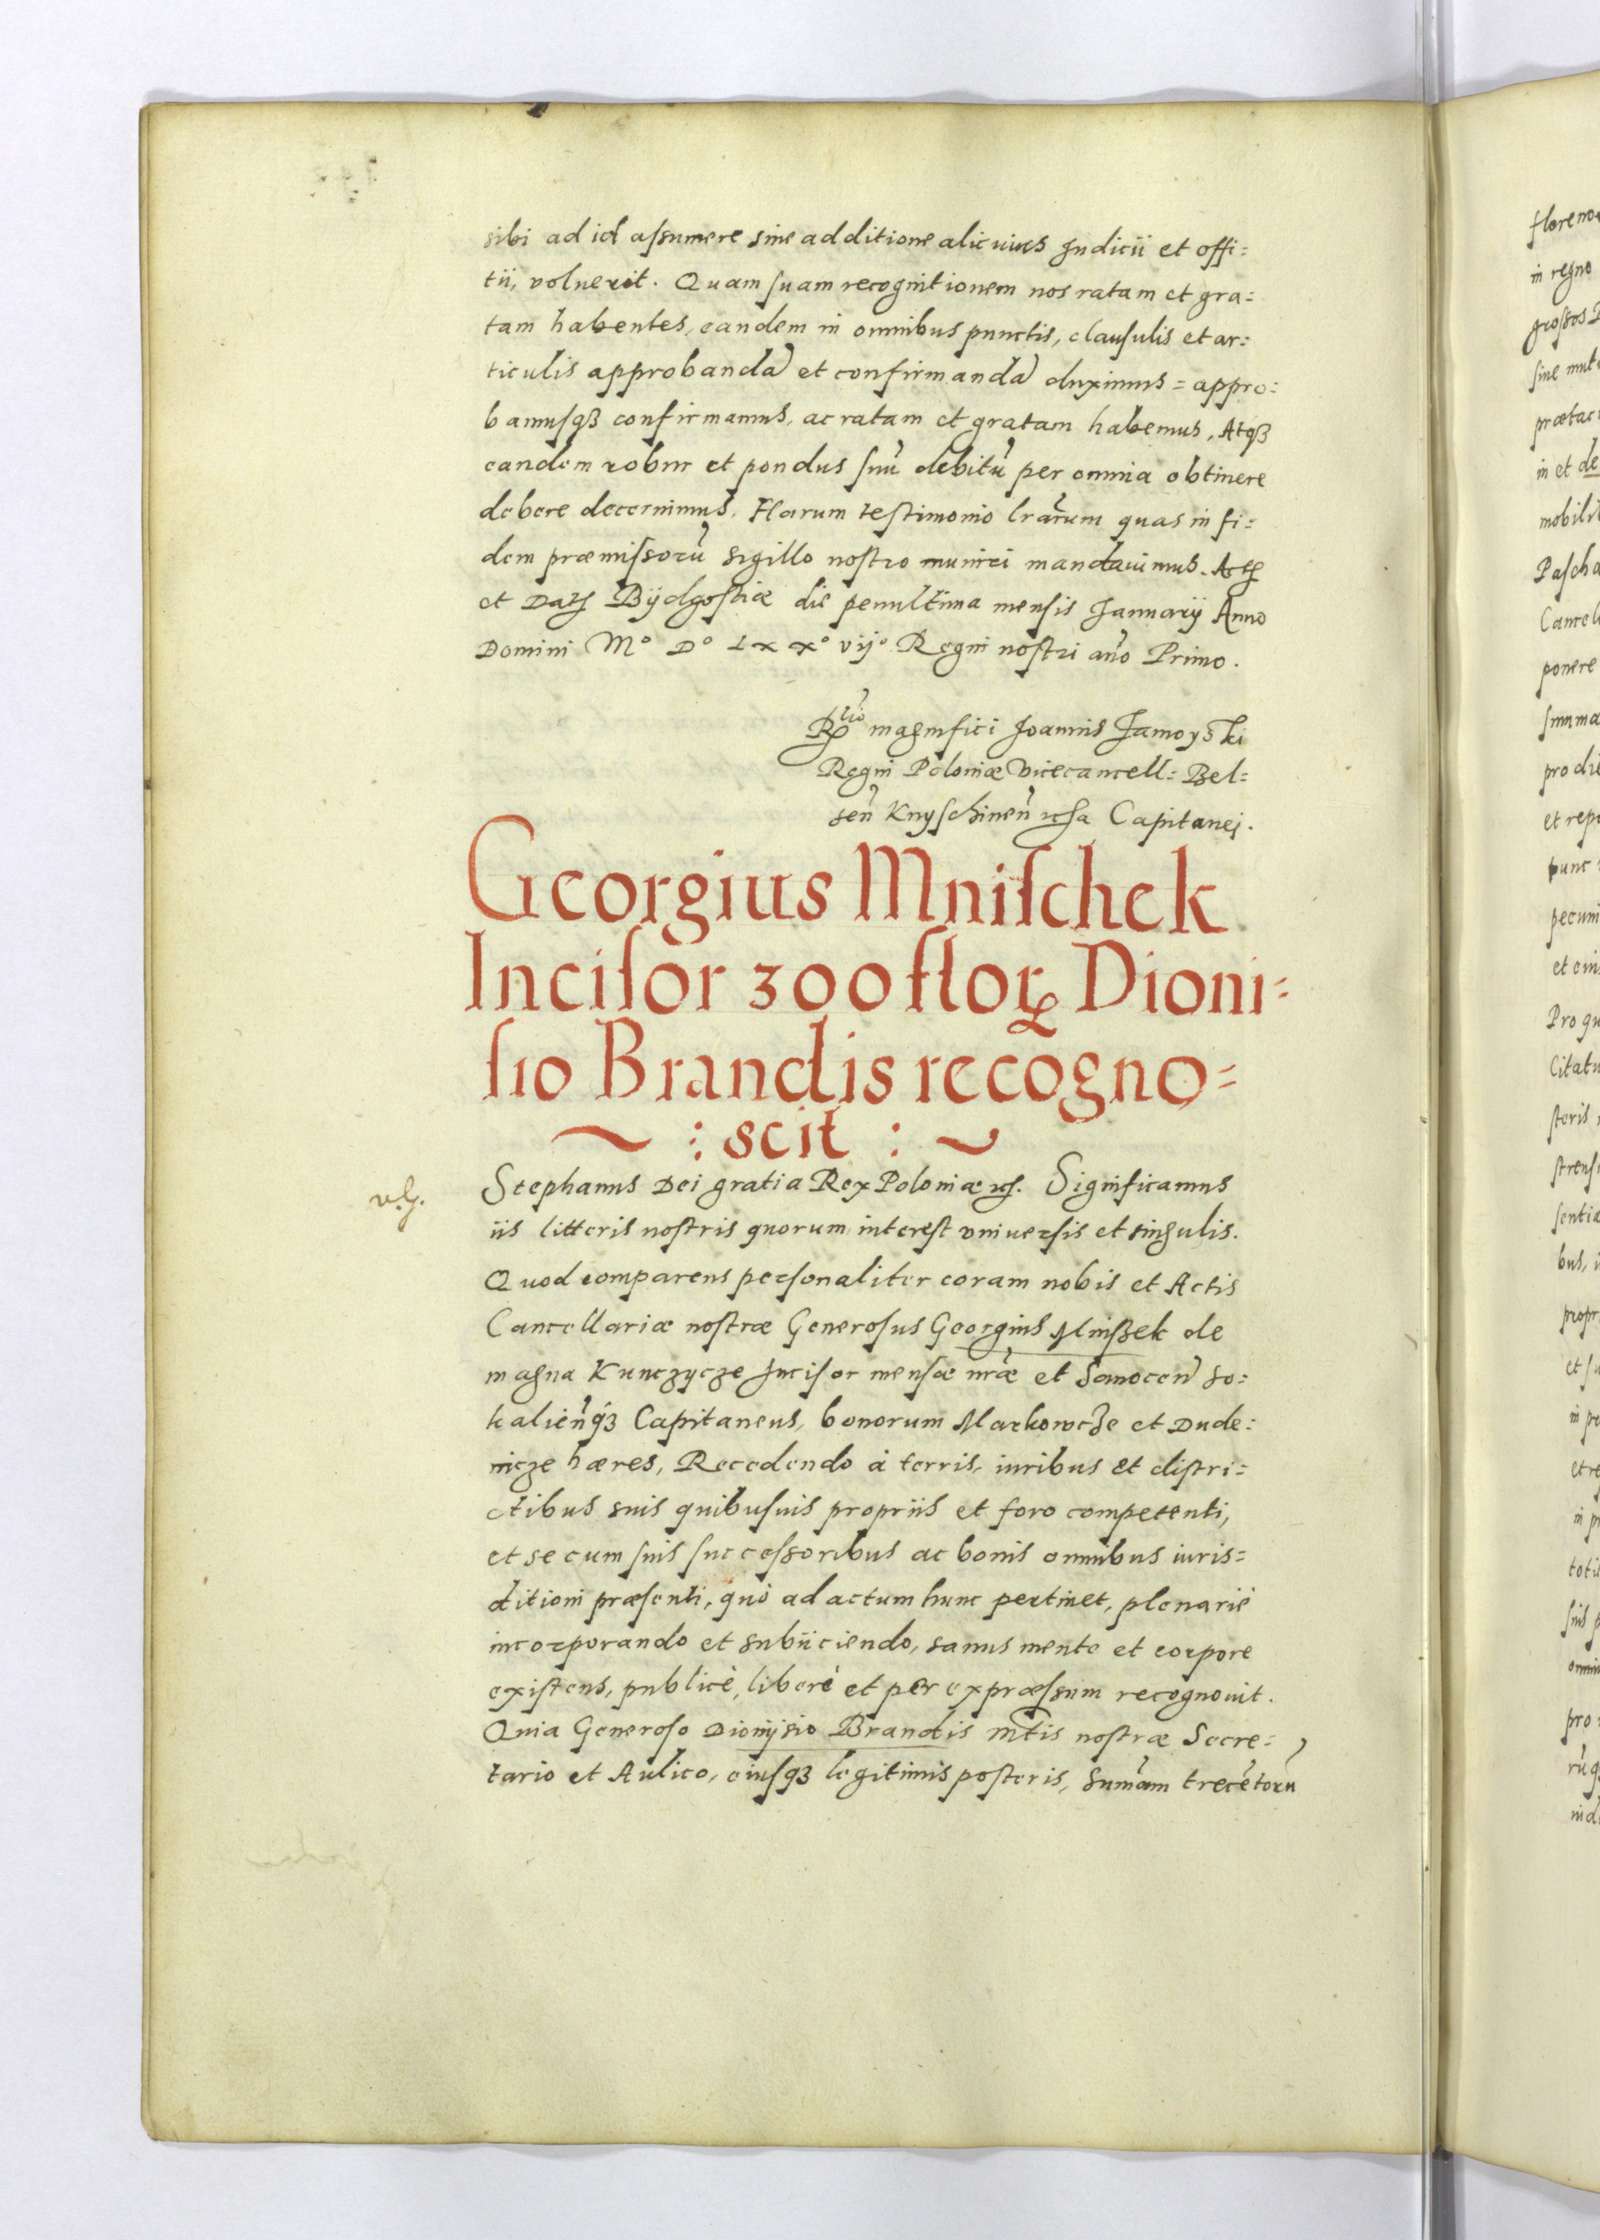 sibi ad id aſsumere sine additione alicuius Judicii et offi=
tii, voluerit. Quam ſuam recognitionem nos ratam et gra=
tam habentes, eandem in omnibus punctis, clauſulis et ar=
ticulis approbandā et confirmandā duximus = appro=
bamuſqꝫ confirmamus, ac ratam et gratam habemus, Atqꝫ
eandem robur et pondus ſuū debitū per omnia obtinere
debere decernimus. Harum teſtimonio lrārum quas in fi=
dem præmiſsorū sigillo nostro muniri mandauimus. Actꝭ
et Datꝭ Bÿdgoſtiæ die penultima mensis Januarij Anno
Domini Mº Dº Lxxº vijº Regni noſtri año Primo.
Rtio magnifici Joannis Zamoyski
Regni Poloniæ Vicecancell= Bel=
zeñ Knyſchineñ ꝛcꝭa Capitanej.
Georgius Mniſchek
Inciſor 300 florꝝ Dioni=
ſio Brandis recogno=
: scit :
v.g.
Stephanus Dei gratia Rex Poloniæ ꝛcꝭ. Significamus
iis litteris noſtris quorum intereſt vniuerſis et singulis.
Quod comparens perſonaliter coram nobis et Actis
Cancellariæ noſtræ Generoſus Georgius Mniſzek de
magna Kunczycze Jnciſor mensæ nr̃æ et Sanoceñ So=
kalieñqꝫ Capitaneus, bonorum Markowcze et Dude=
nicze hæres, Recedendo à terris, iuribus et diſtri=
ctibus suis quibuſuis propriis et foro competenti,
et se cum ſuis ſucceſsoribus ac bonis omnibus iuris=
ditioni præſenti, quò ad actum hunc pertinet, plenariè
incorporando et subiiciendo, sanus mente et corpore
exiſtens, publicè, liberè et per expræſsum recognouit.
Quia Generoſo Dionÿsio Brandis Mtis noſtræ Secre=
tario et Aulico, eiuſqꝫ legitimis poſteris, Sum̃am trecētorū